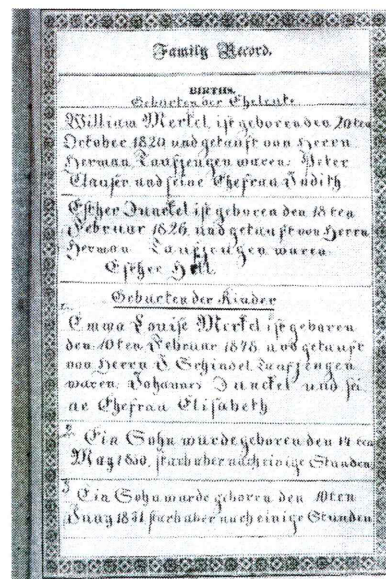 Family Record.
BIRTHS.
Geburten der Eheleute
William Merkel, ist geboren den 20ten
October 1820 und getauft von Herrn
Herman, Taufzeugen waren: Peter
Clauser und seine Ehefrau Judith
Esther Dunckel ist geboren den 18ten
Februar 1826, und getauft von Herrn
Herman Taufzeugen waren
Esther Hill
Geburten der Kinder
1. Emma Louise Merkel ist geboren
den 10ten Februar 1848 und getauft
von Herrn J. Schindel, Taufzeugen
waren: Johannes Dunckel und sei
ne Ehefrau Elisabeth
2. Ein Sohn wurde geboren den 14ten
May 1850, starb aber nach einige Stunden
3 Ein Sohn wurde geboren den 10ten
1851 starb aber nach einige Stunden